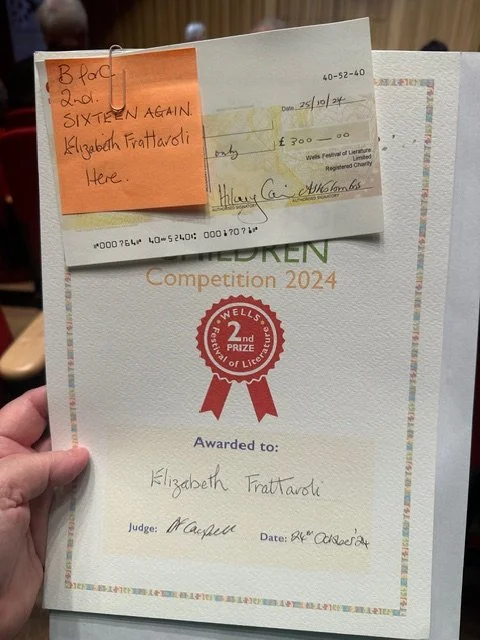 B for C
2nd.
SIXTEEN AGAIN
Elizabeth Frattaroli
Here.
40-52-40
Date 25/10/24
only
£ 300 — 00
Wells Festival of Literature
Limited
Registered Charity
AUTHORISED SIGNATORY
AUTHORISED SIGNATORY
CHILDREN
Competition 2024
WELLS
2nd
PRIZE
Festival of Literature
Awarded to:
Elizabeth Frattaroli
Judge:
Date: 24th October '24